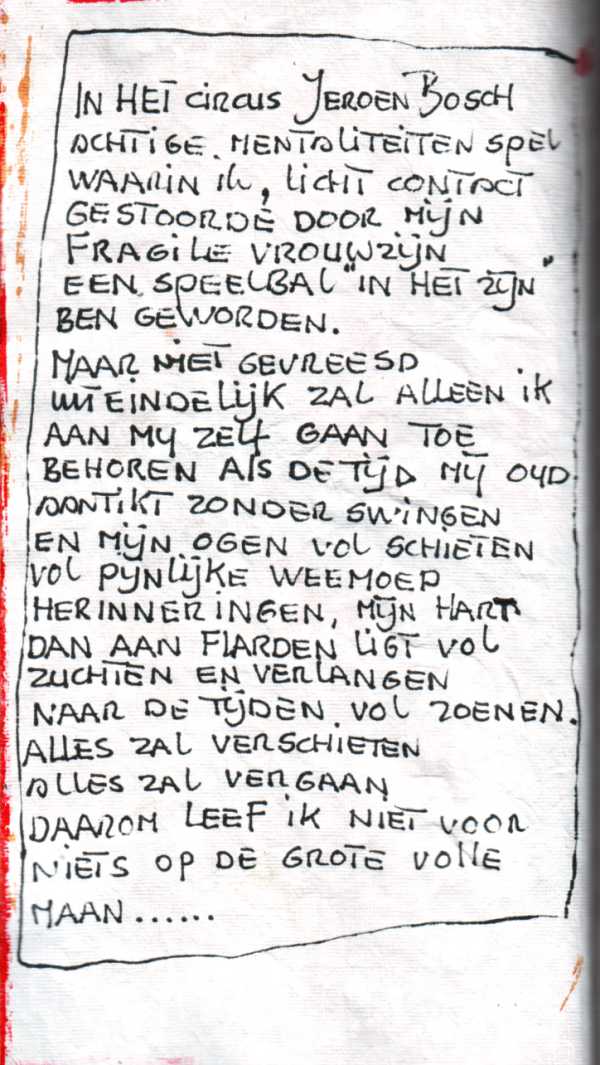 IN HET circus JEROEN BOSCH
ACHTIGE MENTALITEITEN SPEL
WAARIN ik, LICHT CONTACT
GESTOORDE DOOR MIJN
FRAGILE VROUWZIJN
EEN SPEELBAL "IN HET ZIJN"
BEN GEWORDEN.
MAAR NIET GEVREESD
UITEINDELIJK ZAL ALLEEN iK
AAN MY ZELF GAAN TOE
BEHOREN ALS DE TIJD MIJ OUD
AANTIKT ZONDER SWINGEN
EN MIJN OGEN VOL SCHIETEN
VOL PYNLIJKE WEEMOED
HERINNERINGEN, MIJN HART
DAN AAN FLARDEN LIGT VOL
ZUCHTEN EN VERLANGEN
NAAR DE TIJDEN VOL ZOENEN.
ALLES ZAL VERSCHIETEN
ALLES ZAL VERGAAN
DAAROM LEEF iK NIET VOOR
NIETS OP DE GROTE VOLLE
MAAN......